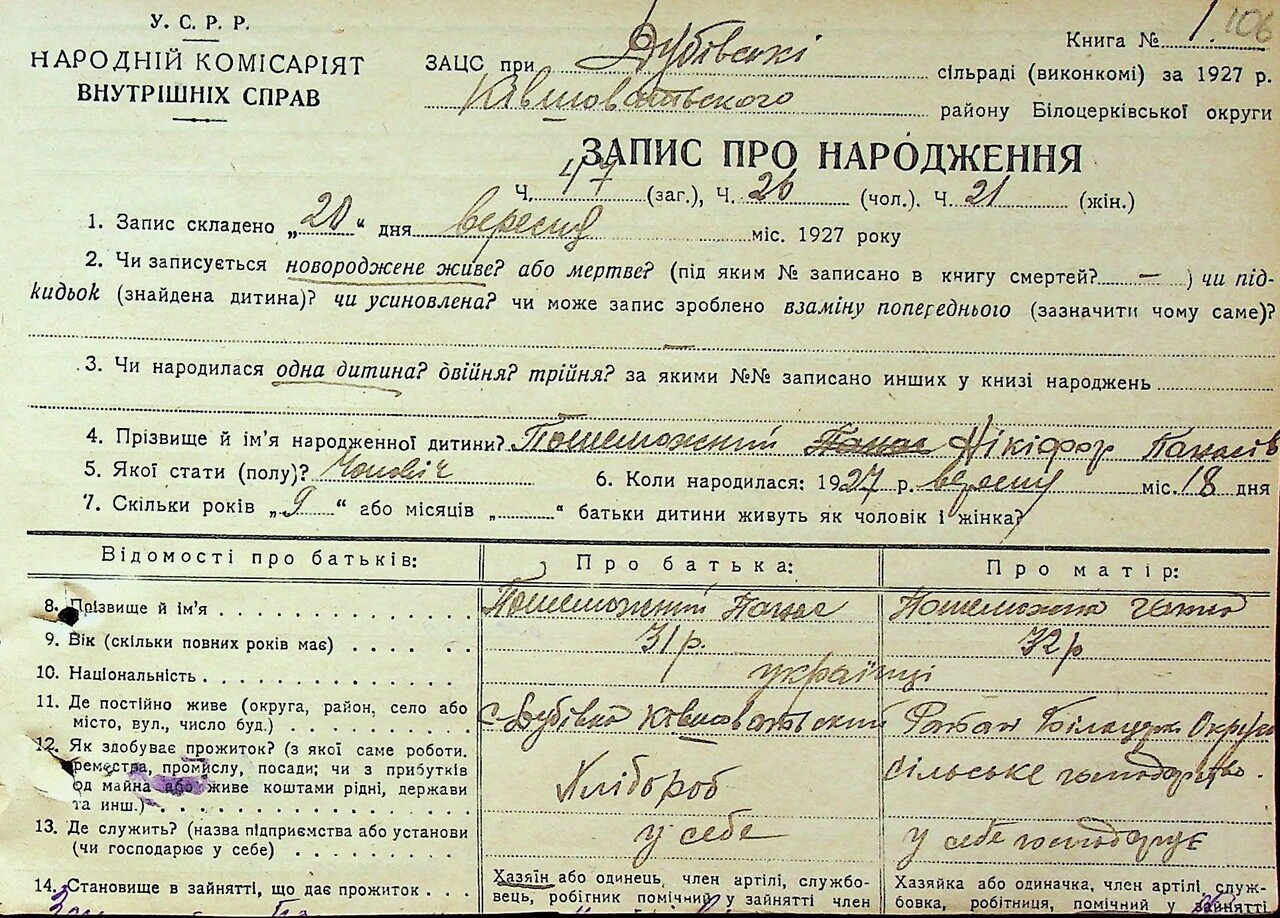 106
У. С. Р. Р.
НАРОДНІЙ КОМІСАРІЯТ
ВНУТРІШНІХ СПРАВ
Книга № 1.
ЗАЦС при Дубівські сільраді (виконкомі) за 1927 р.
Ківшоватьского району Білоцерківської округи
ЗАПИС ПРО НАРОДЖЕННЯ
Ч. 47 (заг.), Ч. 26 (чол.). Ч. 21 (жін.)
1. Запис складено „20“ дня вересня міс. 1927 року
2. Чи записується новороджене живе? або мертве? (під яким № записано в книгу смертей? — ) чи під-
кидьок (знайдена дитина)? чи усиновлена? чи може запис зроблено взаміну попереднього (зазначити чому саме)?
—
3. Чи народилася одна дитина? двійня? трійня? за якими №№ записано инших у книзі народжень
—
4. Прізвище й ім'я народженної дитини? Пошеможний Панас Нікіфор Панасів
5. Якої стати (полу)? Чоловіч 6. Коли народилася: 1927 р. вересня міс. 18 дня
7. Скільки років „9“ або місяців „ “ батьки дитини живуть як чоловік і жінка?
Відомості про батьків: Про батька: Про матір:
8. Прізвище й ім'я Пошеможний Панас Пошеможна Ганна
9. Вік (скільки повних років має) 31 р. 32 р
10. Національність українці
11. Де постійно живе (округа, район, село або
місто, вул., число буд.) с. Дубівка Ківшоватьський Район Білацерк Округи
12. Як здобуває прожиток? (з якої саме роботи.
ремества, промислу, посади; чи з прибутків
од майна або живе коштами рідні, держави
та инш.) Хлібороб сільське господарство.
13. Де служить? (назва підприємства або установи
(чи господарює у себе) у себе у себе господарує
14. Становище в зайнятті, що дає прожиток
Хазяїн або одинець, член артілі, службо-
вець, робітник помічний у зайнятті член
Хазяйка або одиначка, член артілі, служ-
бовка, робітниця, помічний у зайнятті